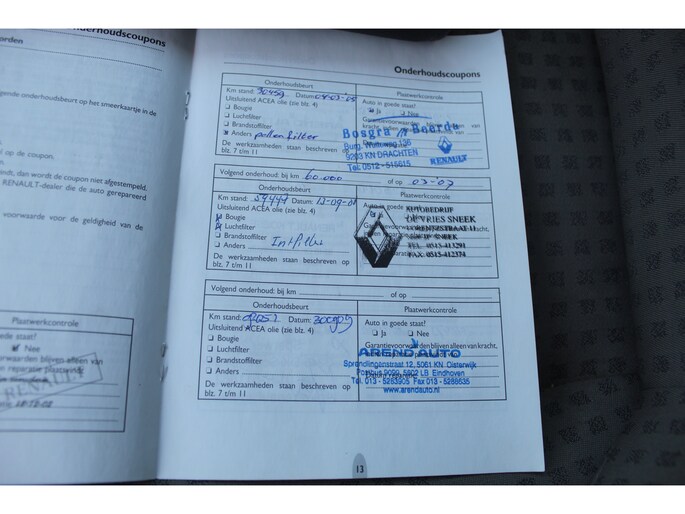 nderhoudscoupons
orden
gende onderhoudsbeurt op het smeerkaartje in de
k op de coupon.
dt, dan wordt de coupon niet afgestempeld.
RENAULT-dealer die de auto gerepareerd
voorwaarde voor de geldigheid van de
Plaatwerkcontrole
staat?
Nee
voorwaarden blijven alleen van
RENAULT
Onderhoudscoupons
Onderhoudsbeurt
Km stand: 30459 Datum:
Uitsluitend ACEA olie (zie blz. 4)
Bougie
Luchtfilter
Brandstoffilter
Anders pollenfilter
De werkzaamheden staan beschreven op
blz. 7 t/m 11
Plaatwerkcontrole
Auto in goede staat?
Ja Nee
Garantievoorwaarden blijven alleen van
Bosgra Boerda
Burg. Wuiteweg 136
9203 KN DRACHTEN
Tel. 0512 - 515615
RENAULT
Volgend onderhoud: bij km 60.000 of op 03-'07
Onderhoudsbeurt
Km stand: Datum:
Uitsluitend ACEA olie (zie blz. 4)
Bougie
Luchtfilter
Brandstoffilter
Anders Int.filter
De werkzaamheden staan beschreven op
blz. 7 t/m 11
Plaatwerkcontrole
Auto in goede staat?
AUTOBEDRIJF
DE VRIES SNEEK
LORENTZSTRAAT 11
SNEEK
TEL. 0515-413291
FAX. 0515-412374
Volgend onderhoud: bij km of op
Onderhoudsbeurt
Km stand: Datum:
Uitsluitend ACEA olie (zie blz. 4)
Bougie
Luchtfilter
Brandstoffilter
Anders
De werkzaamheden staan beschreven op
blz. 7 t/m 11
Plaatwerkcontrole
Auto in goede staat?
Ja Nee
Garantievoorwaarden blijven alleen van kracht,
AREND AUTO
Sprendlingenstraat 12, 5061 KN Oisterwijk
Postbus 9099, 5602 LB Eindhoven
Tel. 013 - 5283905 Fax 013 - 5288635
www.arendauto.nl
13